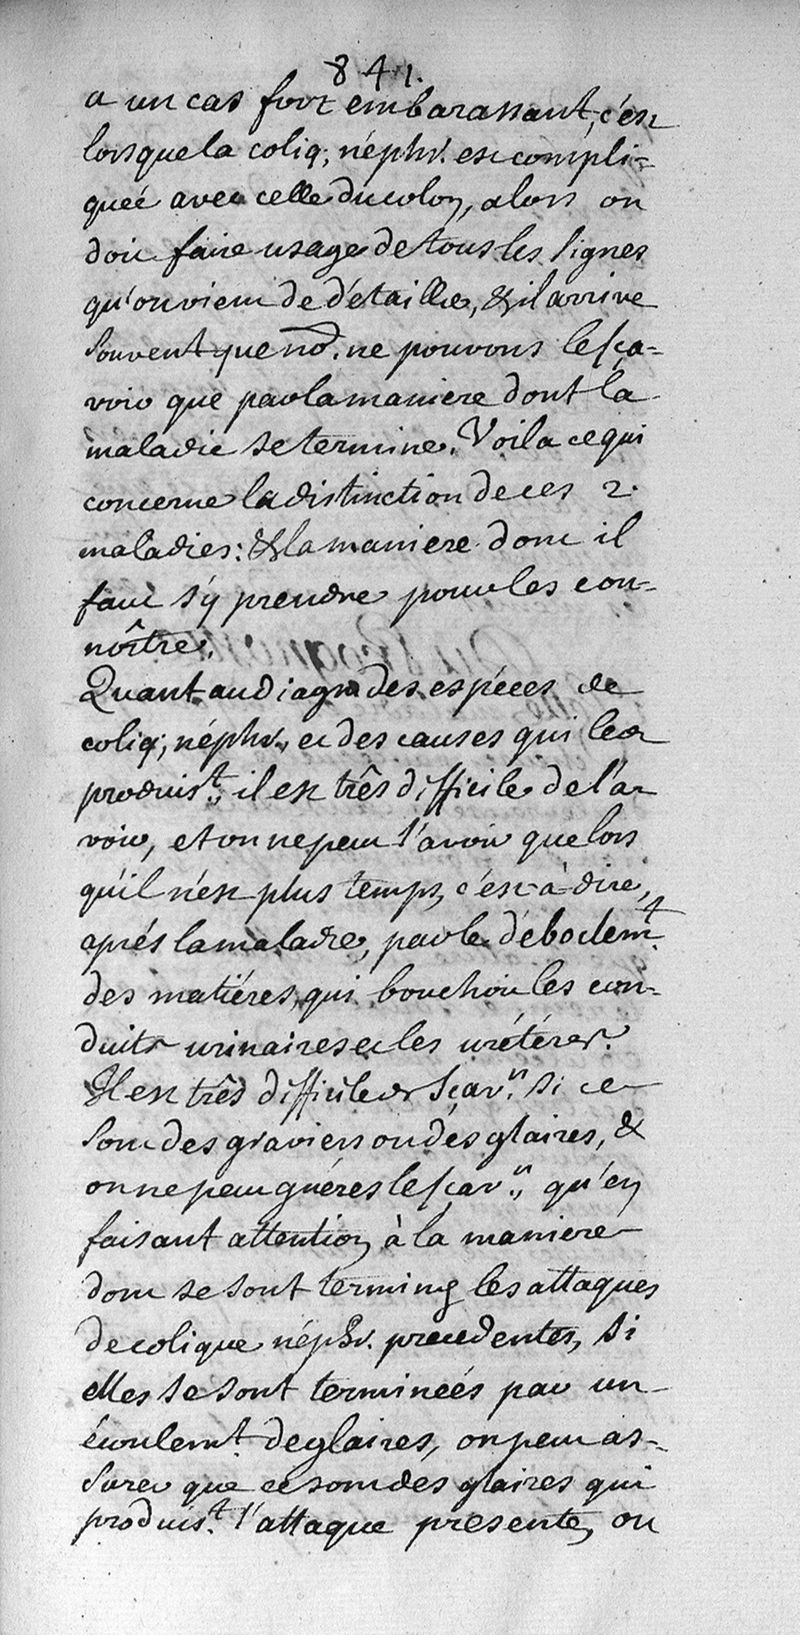 841.
a un cas fort embarassant, c'est
lorsque la coliq; néphr. est compli=
queé avec celle du colon, alors on
doit faire usage de tous les signes
qu'on vient de détailler, & il arrive
souvent que nõ. ne pouvons le sça=
voir que par la maniere dont la
maladie se termine. Voila ce qui
concerne la distinction de ces 2.
maladies: & la maniere dont il
faut s'y prendre pour les con=
nôitre.
Quant au diagn des espéces de
coliq; néphr., et des causes qui les
produis.t, il est très difficile de l'a
voir, et on ne peut l'avoir que lors
qu'il n'est plus temps, c'est-à-dire,
aprés la maladie, par le déboclem.t
des matiéres, qui bouchoit les con=
duits urinaires et les urétéres.
Il est très difficile de sçav.r si ce
sont des graviers ou des glaires, &
on ne peut guéres le sçav.r, qu'en
faisant attention à la maniere
dont se sont terminés les attaques
de colique néphr. precedentes, si
elles se sont terminées par un
écoulem.t de glaires, on peut as=
surer que ce sont des glaires qui
produis.t l'attaque presente, ou